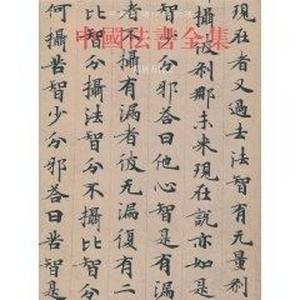 中國法書全集
現在者又過去法智有无量刹
攝彼刹那未來現在說亦如是
智少分邪答曰他心智是有漏
者不攝有漏者彼无漏復有二
比智分攝法智分不攝比智分
何攝苦智少分邪答曰苦智是